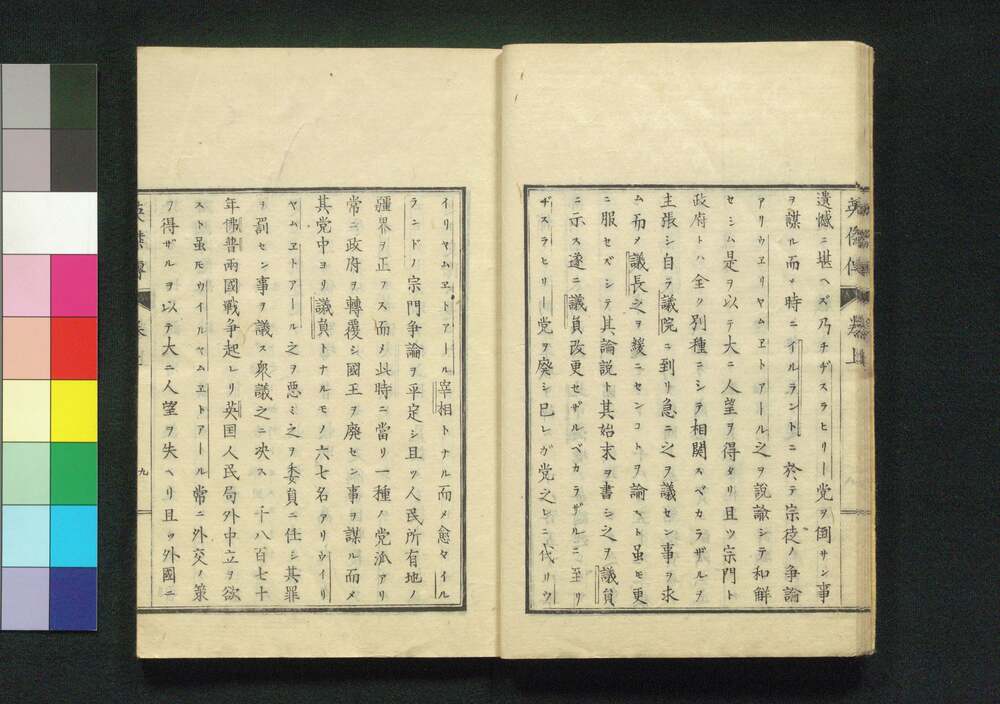 英傑傳 卷上
遺憾ニ堪ヘズ乃チヂスラヒリー党ヲ倒サン事
ヲ謀ル而〆時ニイルラントニ於テ宗徒ノ争論
アリウヱリヤムヱトアール之ヲ説諭シテ和解
セシム是ヲ以テ大ニ人望ヲ得タリ且ツ宗門ト
政府トハ全ク別種ニシテ相関スベカラザルヲ
主張シ自ラ議院ニ到リ急ニ之ヲ議セン事ヲ求
ム而〆議長之ヲ緩ニセンコトヲ論ヘト虽モ更
ニ服セズシテ其論説ト其始末ヲ書シ之ヲ議員
ニ示ス遂ニ議員改更セザルベカラザルニ至リ
ヂスラヒリー党ヲ廃シ已レガ党之レニ代リウ
イリヤムヱトアール宰相トナル而〆愈々イル
ランドノ宗門争論ヲ平定シ且ツ人民所有地ノ
疆界ヲ正フス而〆此時ニ當リ一種ノ党派アリ
常ニ政府ヲ轉覆シ國王ヲ廃セン事ヲ謀ル而〆
其党中ヨリ議員トナルモノ六七名アリウイリ
ヤムヱトアール之ヲ悪ミ之ヲ委員ニ任シ其罪
ヲ罰セン事ヲ議ス衆議之ニ决ス一千八百七十
年佛普兩國戰争起レリ英国人民局外中立ヲ欲
スト虽モウイルヤムヱトアール常ニ外交ノ策
ヲ得ザルヲ以テ大ニ人望ヲ失ヘリ且ツ外國ニ
英傑傳 卷上 九